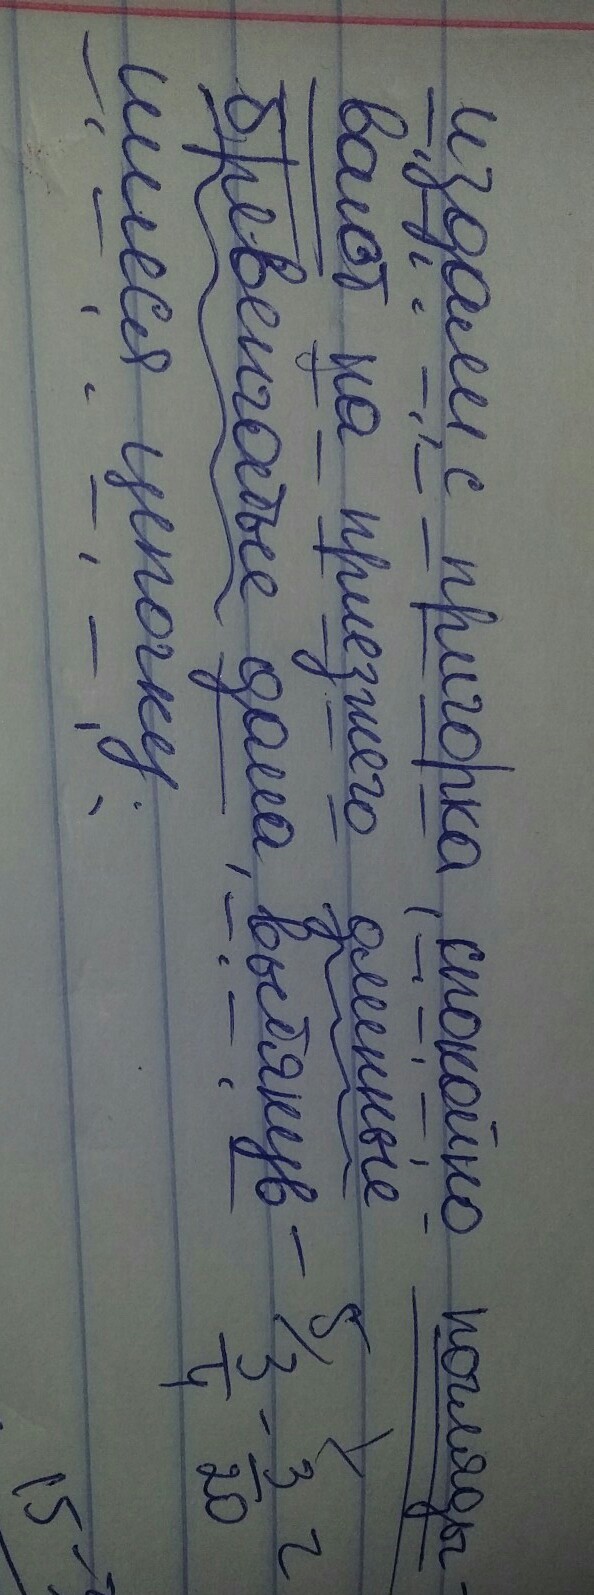 издали с пригорка, спокойно погляды-
вают на приезжего длинные
бревенчатые дома, вытянув-
шиеся цепочку.
5)
3/4 - 3/20
15